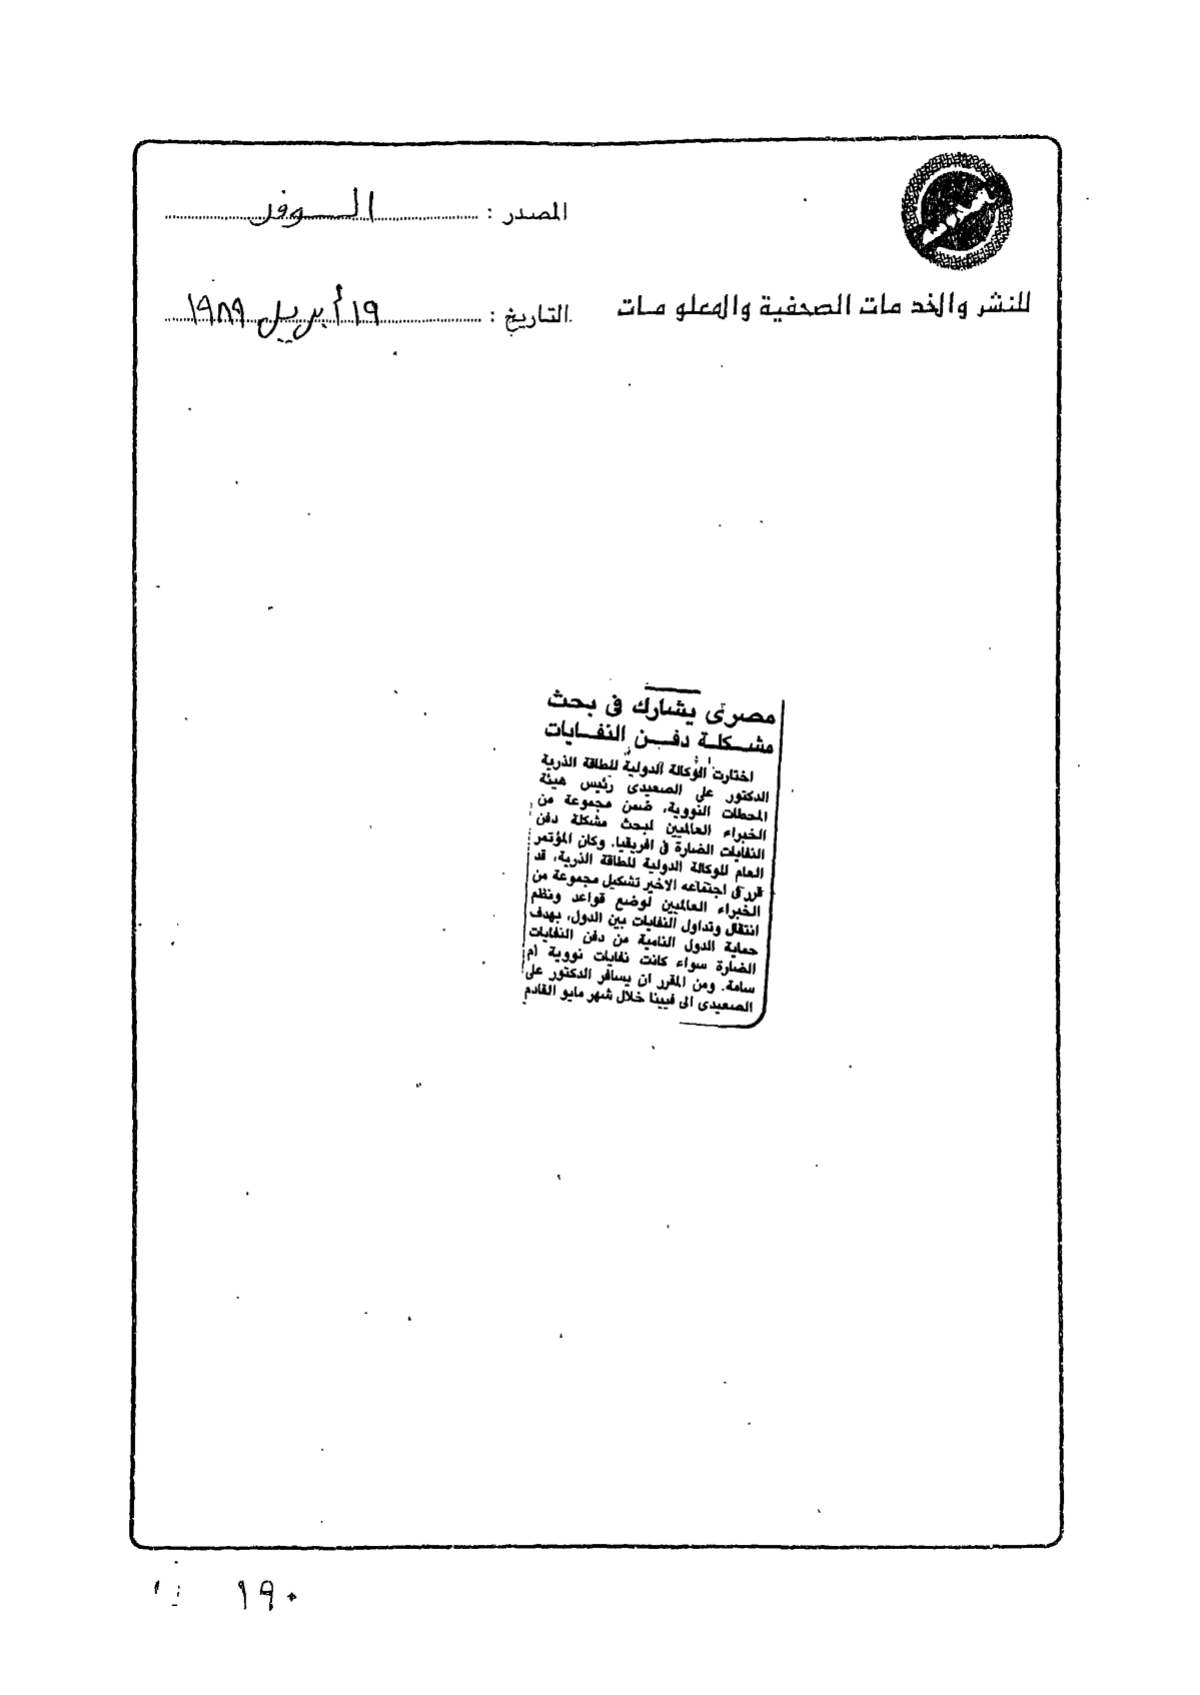 المصدر : الوفد
للنشر والخدمات الصحفية والمعلومات
التاريخ : ١٩ أبريل ١٩٨٩
مصرى يشارك فى بحث
مشكلة دفن النفايات
اختارت الوكالة الدولية للطاقة الذرية
الدكتور على الصعيدى رئيس هيئة
المحطات النووية، ضمن مجموعة من
الخبراء العالميين لبحث مشكلة دفن
النفايات الضارة فى افريقيا. وكان المؤتمر
العام للوكالة الدولية للطاقة الذرية، قد
قرر فى اجتماعه الاخير تشكيل مجموعة من
الخبراء العالميين لوضع قواعد ونظم
انتقال وتداول النفايات بين الدول، بهدف
حماية الدول النامية من دفن النفايات
الضارة سواء كانت نفايات نووية أم
سامة. ومن المقرر ان يسافر الدكتور على
الصعيدى الى فيينا خلال شهر مايو القادم
١٩٠